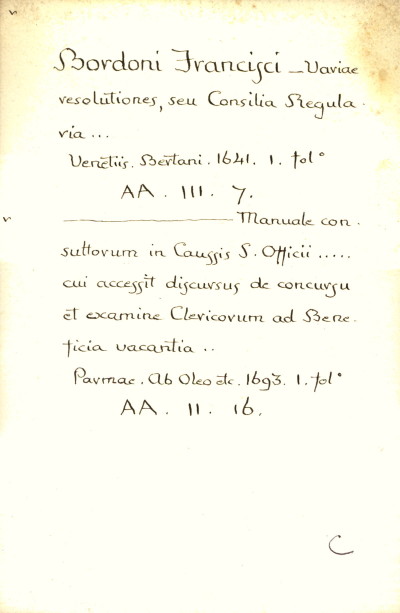 v
Bordoni Francisci _ Variae
resolutiones, seu Consilia Regula.
ria ...
Venetiis. Bertani. 1641. 1. fol°
AA. III. 7.
v
———— Manuale con.
sultorum in Caussis S. Officii .....
cui accessit discursus de concursu
et examine Clericorum ad Bene.
ficia vacantia ..
Parmae. Ab Oleo etc. 1693. 1. fol°
AA. II. 16.
C